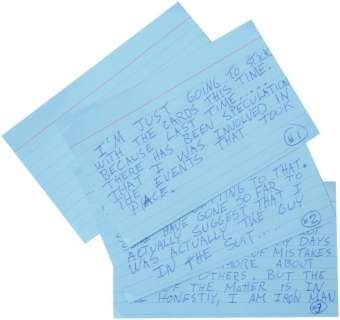 I'M JUST GOING TO STICK
WITH THE CARDS THIS TIME.
BECAUSE LAST TIME....
THERE HAS BEEN SPECULATION
THAT I WAS INVOLVED IN
THE EVENTS THAT TOOK
PLACE.
#1
GETTING TO THAT.
HAVE GONE SO FAR TO
ACTUALLY SUGGEST THAT I
WAS ACTUALLY THE GUY
IN THE SUIT...
#2
OF MY DAYS
OF MISTAKES
MORE ABOUT
OTHERS. BUT THE
OF THE MATTER IS, IN
HONESTLY, I AM IRON MAN